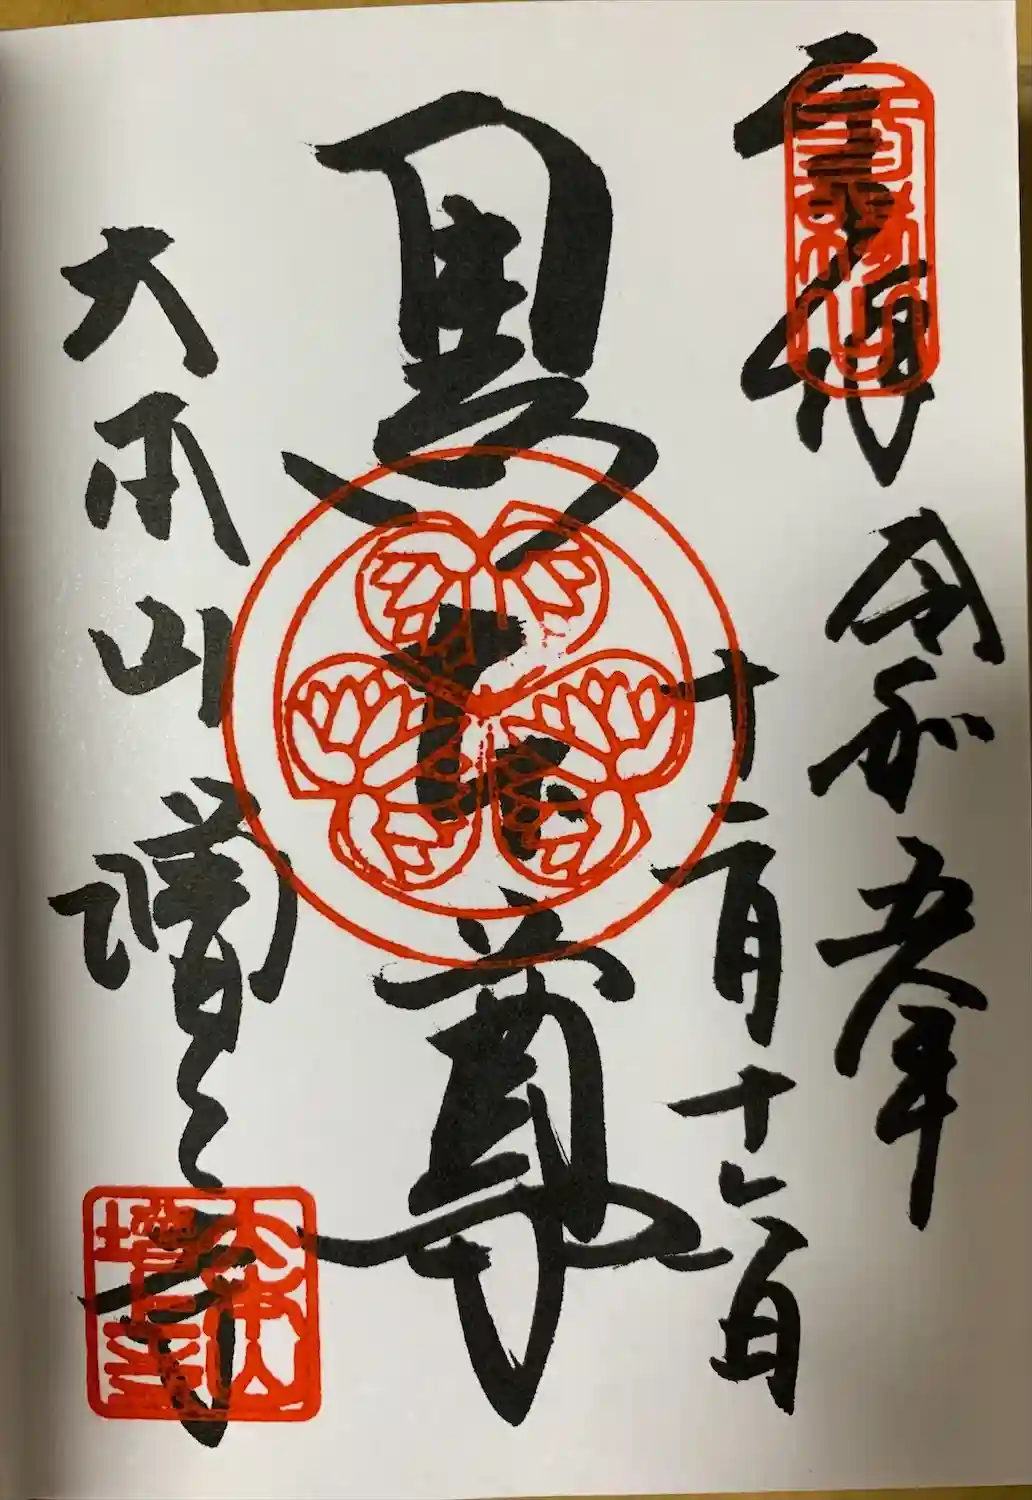 三縁山
令和五年
十二月十六日
黒本尊
大本山増上寺
大本山
増上寺